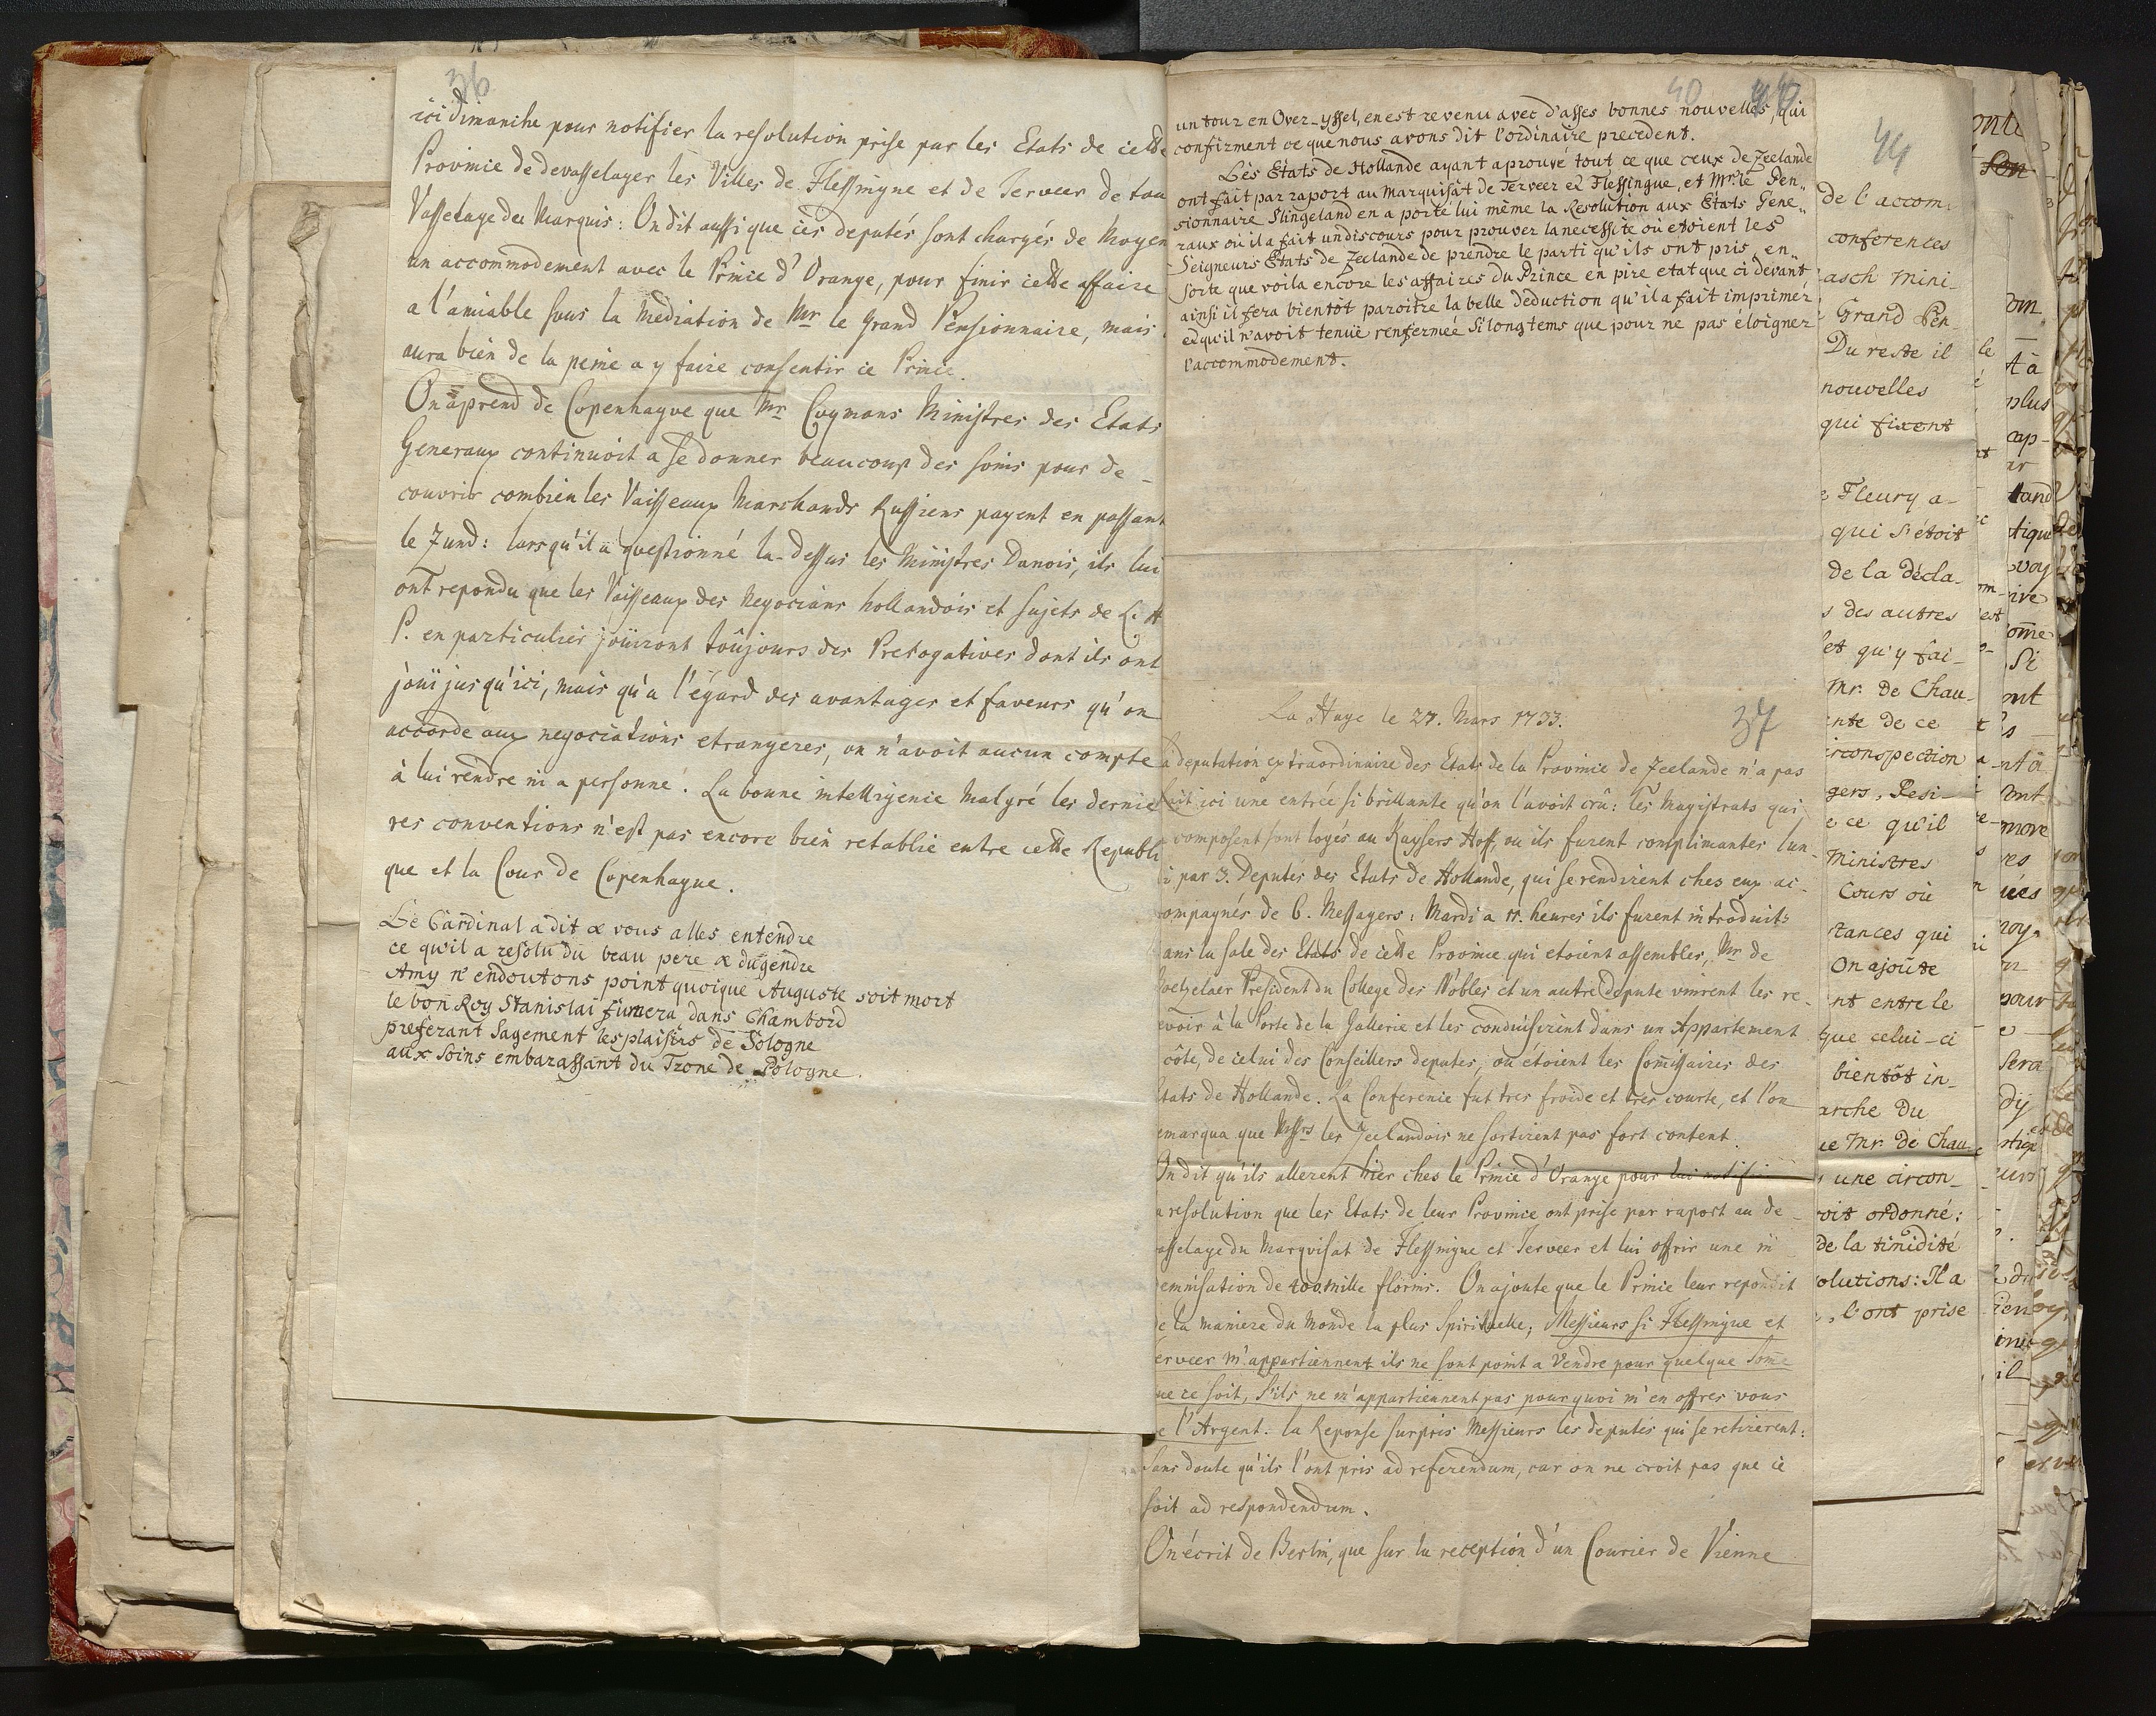 36
ici dimanche pour notifier la resolution prise par les Etats de cette
Province de devasselager les Villes de Flessingue et de Terveer de tou
Vasselage du Marquis: On dit aussi que ces deputés sont chargés de moyen
un accommodement avec le Prince d'Orange, pour finir cette affaire
a l'amiable sous la Mediation de Mr le Grand Pensionnaire, mais
aura bien de la peine a y faire consentir ce Prince.
On aprend de Copenhague que Mr Coymans Ministres des Etats
Generaux continuoit a se donner beaucoup des soins pour de-
couvrir combien les Vaisseaux Marchands Russiens payent en passant
le Zund: lorsqu'il a questionné la-dessus les Ministres Danois, ils lui
ont repondu que les Vaisseaux des Negocians hollandois et sujets de L. H
P. en particulier joüiront toûjours des Prerogatives dont ils ont
joüi jusqu'ici, mais qu'a l'égard des avantages et faveurs qu'on
accorde aux negociations etrangeres, on n'avoit aucun compte
à lui rendre ni a personne. La bonne intelligence malgré les dernie
res conventions n'est pas encore bien retablie entre cette Republi
que et la Cour de Copenhague.
Le Cardinal a dit & vous alles entendre
ce qu'il a resolu du beau pere & du gendre
Amy n'en doutons point quoique Auguste soit mort
le bon Roy Stanislaï fumera dans Chambord
preferant sagement les plaisirs de Sologne
aux soins embarassant du Trone de Pologne.
40
un tour en Over-yssel, en est revenu avec d'asses bonnes nouvelles, qui
confirment ce que nous avons dit l'ordinaire precedent.
Les Etats de Hollande ayant aprouvé tout ce que ceux de Zeelande
ont fait par raport au Marquisat de Terveer et Flessingue, et Mr. le Pen„
sionnaire Slingeland en a porté lui même la Resolution aux Etats Gene„
raux où il a fait un discours pour prouver la necessité où etoient les
Seigneurs Etats de Zeelande de prendre le parti qu'ils ont pris, en„
sorte que voila encore les affaires du Prince en pire etat que ci devant
ainsi il fera bientôt paroitre la belle deduction qu'il a fait imprimer
et qu'il n'avoit tenuë renfermée si longtems que pour ne pas éloigner
l'accommodement.
La Haye le 27. Mars 1733.
37
a deputation extraordinaire des Etats de la Province de Zeelande n'a pas
fait ici une entrée si brillante qu'on l'avoit crû: les Magistrats qui
composent sont logés au Kaysers Hoff, ou ils furent complimantes lun-
di par 3. Deputés des Etats de Hollande, qui se rendirent ches eux ac-
compagnés de 6. Messagers: Mardi a 11. heures ils furent introduits
ans la sale des Etats de cette Province qui etoient assembles, Mr de
oetzelaer President du College des Nobles et un autre depute vinrent les re-
evoir à la Porte de la Gallerie et les conduisirent dans un Appartement
côte, de celui des Conseillers deputes, ou étoient les Commissaires des
tats de Hollande. La Conference fut tres froide et tres courte, et l'on
emarqua que Messrs les Zeelandois ne sortirent pas fort content.
On dit qu'ils allerent hier ches le Prince d'Orange pour lui notifi
a resolution que les Etats de leur Province ont prise par raport au de-
asselage du Marquisat de Flessingue et Terveer et lui offrir une in
emnisation de 400 mille florins. On ajoute que le Prince leur repondit
e la maniere du monde la plus Spirituelle; Messieurs si Flessingue et
erveer m'appartiennent ils ne sont point a Vendre pour quelque Some
ue ce soit, s'ils ne m'appartiennent pas pourquoi m'en offres vous
e l'Argent. la Reponse surpris Messieurs les deputés qui se retirerent:
Sans doute qu'ils l'ont pris ad referendum, car on ne croit pas que ce
soit ad respondendum.
On écrit de Berlin, que sur la reception d'un Courier de Vienne
44
de l'accom.
conferences
asch Mini-
Grand Pen
Du reste il
nouvelles
qui fixent
Fleury a-
qui s'étoit
de la décla-
s des autres
et qu'y fai-
Mr. de Chau-
nte de ce
irconspection
gers, Resi-
e ce qu'il
Ministres
Cours où
tances qui
On ajoûte
nt entre le
que celui-ci
bientôt in-
arche du
ue Mr. de Chau-
une circon-
oit ordonné:
de la timidité
olutions: Il a
, l'ont prise